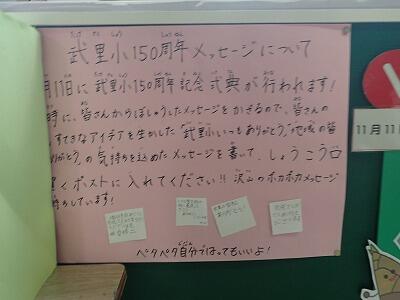 武里小150周年メッセージについて
月11日に武里小150周年記念式典が行われます!
時に、皆さんからぼしゅうしたメッセージをかざるので、皆さんの
すてきなアイデアを生かした"武里小いつもありがとう""地域の皆
りがとう"の気持ちを込めたメッセージを書いて、しょうこう口
くポストに入れてください!!沢山のポカポカメッセージ
待ちしています!
ペタペタ自分ではってもいいよ!
11月11